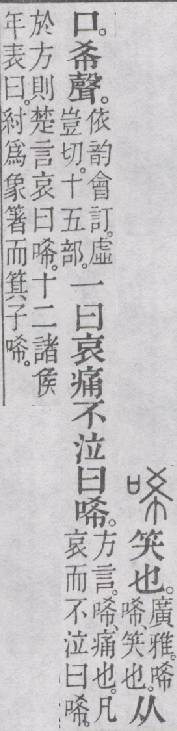 唏
笑也。
廣雅。唏
唏、笑也。
从
口。希聲。
依韵會訂。虛
豈切。十五部。
一曰哀痛不泣曰唏。
方言。唏、痛也。凡
哀而不泣曰唏。
於方則楚言哀曰唏。十二諸侯
年表曰。紂爲象箸而箕子唏。